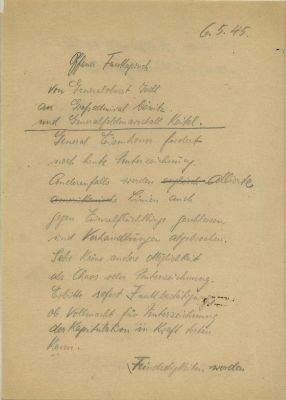 6.5.45.
Offener Funkspruch
von Generaloberst Jodl
an Großadmiral Dönitz
und Generalfeldmarschall Keitel.
General Eisenhower fordert
noch heute Unterzeichnung.
Anderenfalls werden Alliierte
amerikanische Linien auch
gegen Einzelflüchtlinge geschlossen
und Verhandlungen abgebrochen.
Sehe keine andere Möglichkeit
als Chaos oder Unterzeichnung.
Erbitte sofort Funkbestätigung
ob Vollmacht für Unterzeichnung
der Kapitulation in Kraft treten
kann.
Feindseligkeiten werden